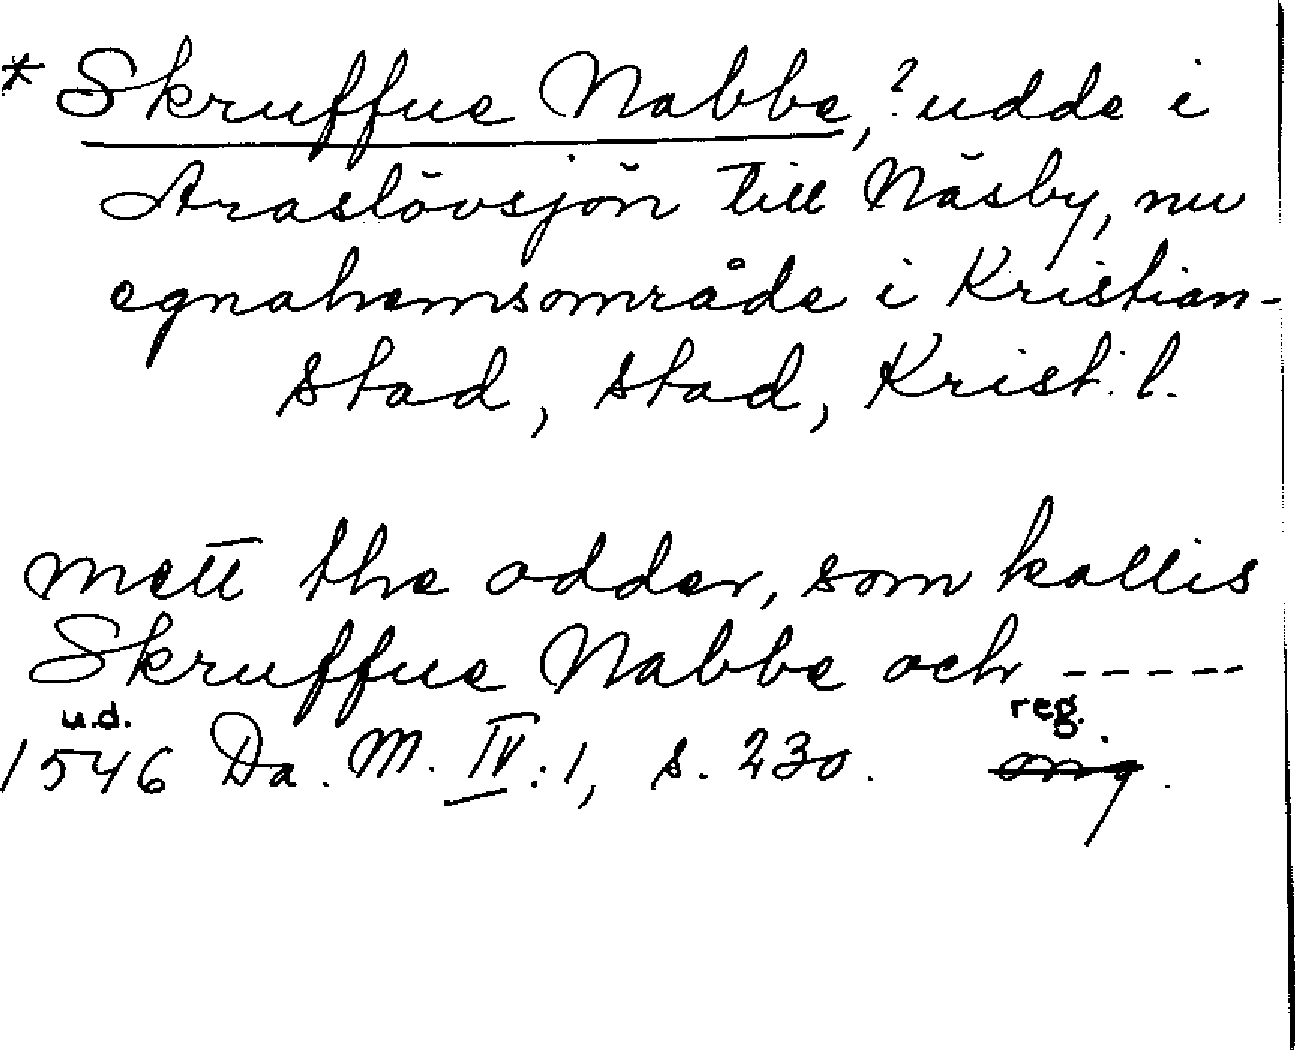 * Skruffue Nabbe, ? udde i
Araslövsjön till Näsby, nu
egnahemsområde i Kristian-
stad, stad, Krist. l.
mett the odder, som kallis
Skruffue Nabbe och -----
u.d. reg.
1546 Da. M. IV:1, s. 230. orig.